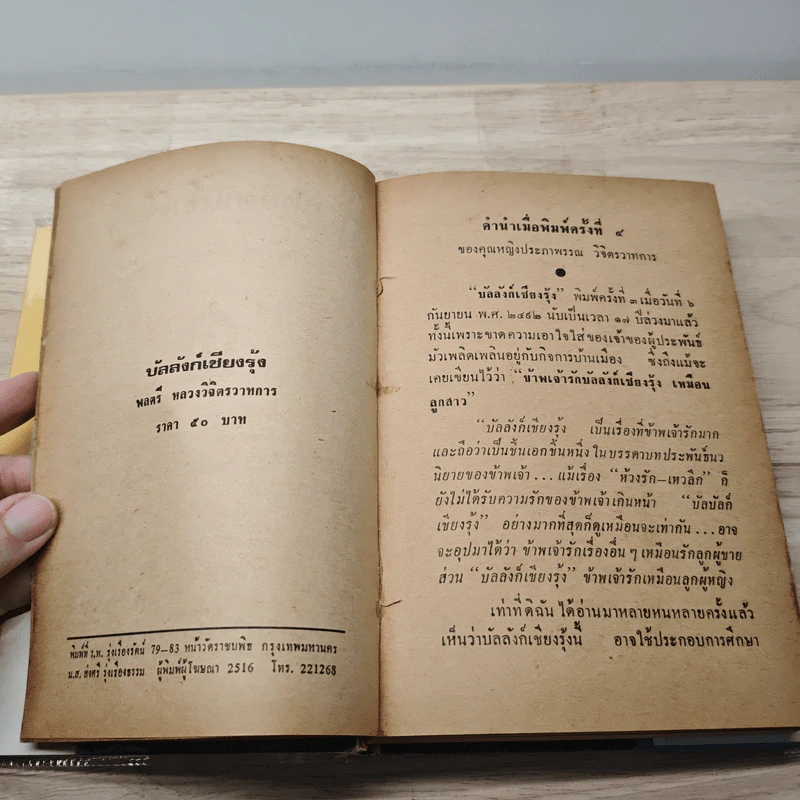 บัลลังก์เชียงรุ้ง
พลตรี หลวงวิจิตรวาทการ
ราคา ๕๐ บาท
พิมพ์ที่ ร.พ. รุ่งเรืองรัตน์ 79–83 หน้าวัดราชบพิธ กรุงเทพมหานคร
น.ส. ส่งศรี รุ่งเรืองธรรม ผู้พิมพ์ผู้โฆษณา 2516 โทร. 221268
คำนำเมื่อพิมพ์ครั้งที่ ๔
ของคุณหญิงประภาพรรณ วิจิตรวาทการ
“บัลลังก์เชียงรุ้ง” พิมพ์ครั้งที่ ๓ เมื่อวันที่ ๖
กันยายน พ.ศ. ๒๔๙๒ นับเป็นเวลา ๑๗ ปีล่วงมาแล้ว
ทั้งนี้เพราะขาดความเอาใจใส่ของเจ้าของผู้ประพันธ์
มัวเพลิดเพลินอยู่กับกิจการบ้านเมือง ซึ่งถึงแม้จะ
เคยเขียนไว้ว่า “ข้าพเจ้ารักบัลลังก์เชียงรุ้ง เหมือน
ลูกสาว”
“บัลลังก์เชียงรุ้ง เป็นเรื่องที่ข้าพเจ้ารักมาก
และถือว่าเป็นชิ้นเอกชิ้นหนึ่ง ในบรรดาบทประพันธ์นว
นิยายของข้าพเจ้า ... แม้เรื่อง “ห้วงรัก–เหวลึก” ก็
ยังไม่ได้รับความรักของข้าพเจ้าเกินหน้า “บัลบัลก์
เชียงรุ้ง” อย่างมากที่สุดก็ดูเหมือนจะเท่ากัน ... อาจ
จะอุปมาได้ว่า ข้าพเจ้ารักเรื่องอื่น ๆ เหมือนรักลูกผู้ชาย
ส่วน “บัลลังก์เชียงรุ้ง” ข้าพเจ้ารักเหมือนลูกผู้หญิง
เท่าที่ดิฉันได้อ่านมาหลายหนหลายครั้งแล้ว
เห็นว่าบัลลังก์เชียงรุ้งนี้ อาจใช้ประกอบการศึกษา